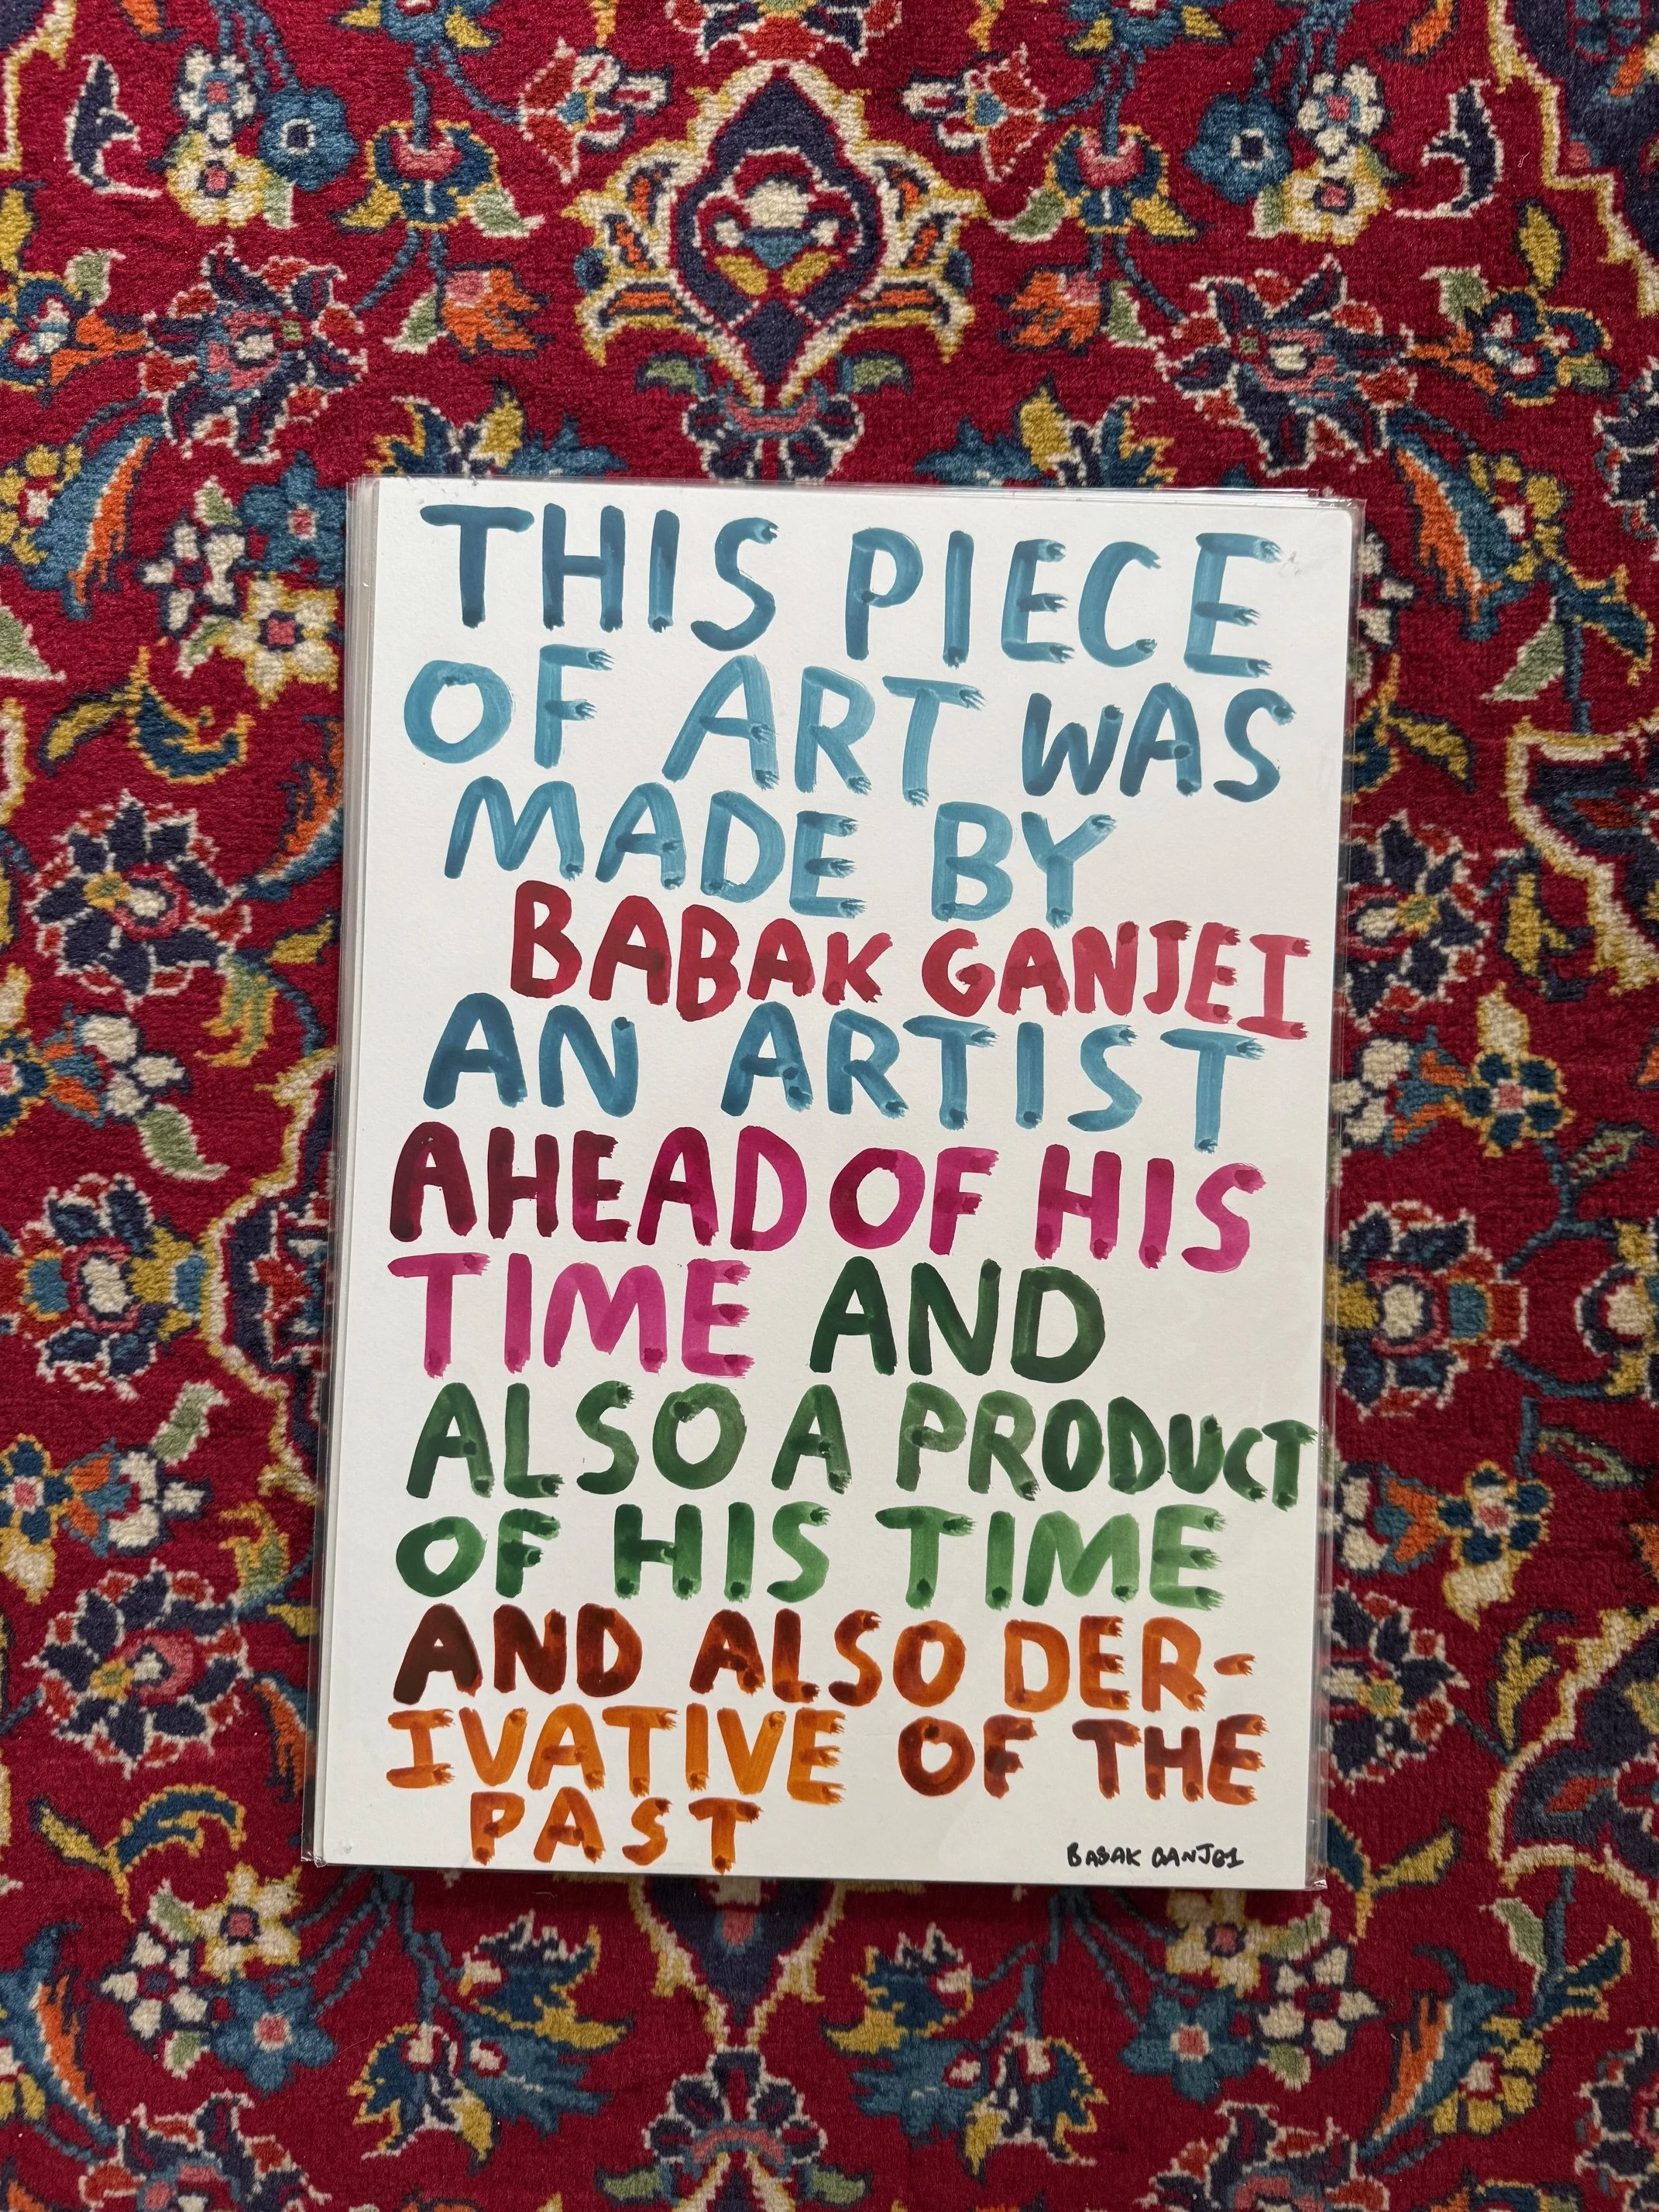 THIS PIECE
OF ART WAS
MADE BY
BABAK GANJEI
AN ARTIST
AHEAD OF HIS
TIME AND
ALSO A PRODUCT
OF HIS TIME
AND ALSO DER-
IVATIVE OF THE
PAST
BABAK GANJEI